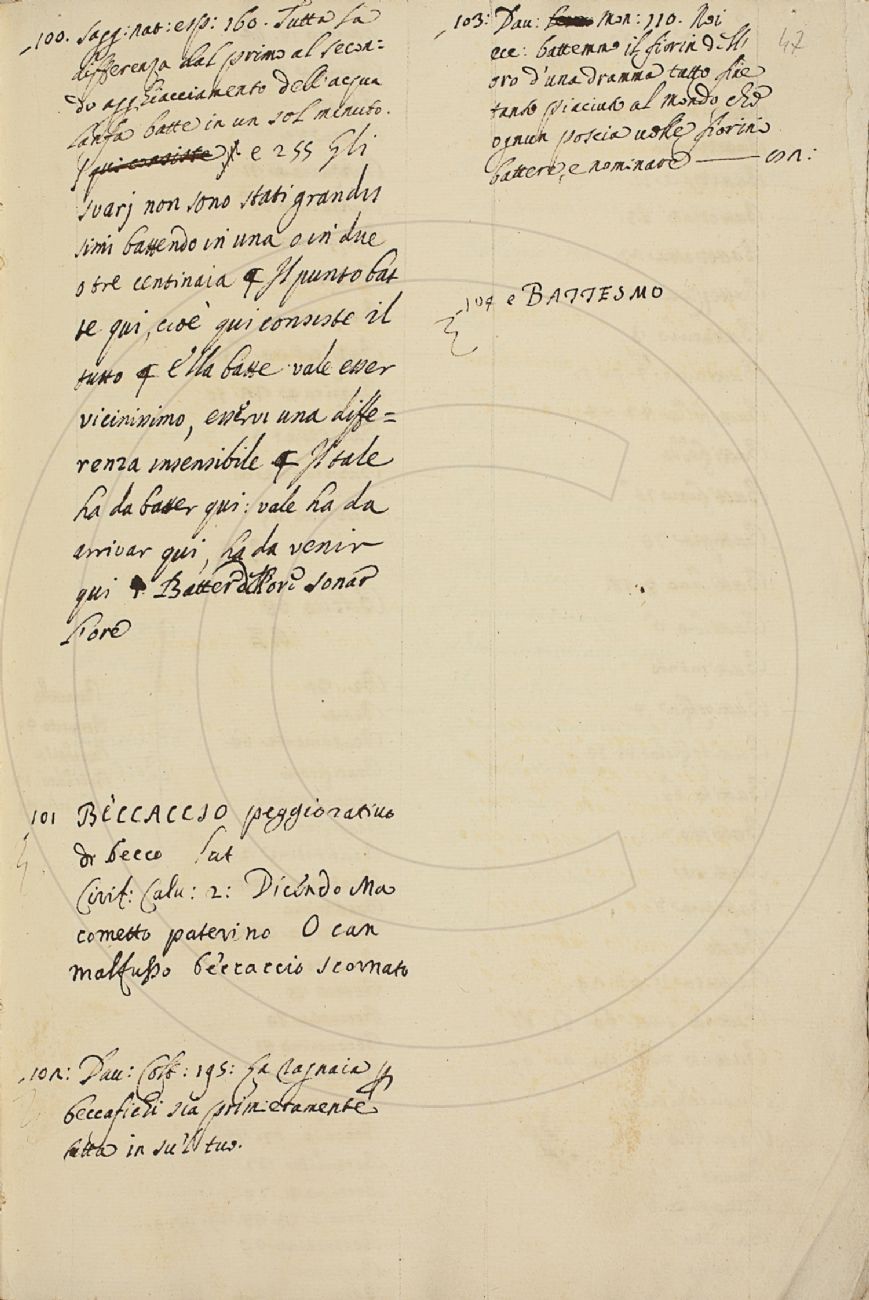 100. Sagg: nat: esp: 160. Tutta la
differenza dal primo al secon=
do agghiacciamento dell'acqua
lanfa batte in un sol minuto.
qui consiste e 255 Gli
svarj non sono stati grandis
simi battendo in una o in due
o tre centinaia ¶ Il punto bat
te qui, cioè qui consiste il
tutto ¶ E' la batte vale esser
vicinissimo, esservi una diffe=
renza insensibile ¶ Il tale
ha da batter qui: vale ha da
arrivar qui, ha da venir
qui ¶ Batter dell'ore sonar
l'ore
101 BÈCCACCIO peggiorativo
di becco
Cirif: Calu: 2: Dicendo Ma
cometto paterino O can
malfusso bèccaccio scornato
102: Dau: Colt: 195: La ragnaia
beccafichi sia primieramente
in su'l tuo.
103: Dau: Mon: 110. Noi
ecc: battemmo il fiorin dell'
oro d'una dramma tutto fine
tanto piaciuto al mondo che
ognun poscia volle fiorini
battere, e nominare con:
104 e BATTESMO
47